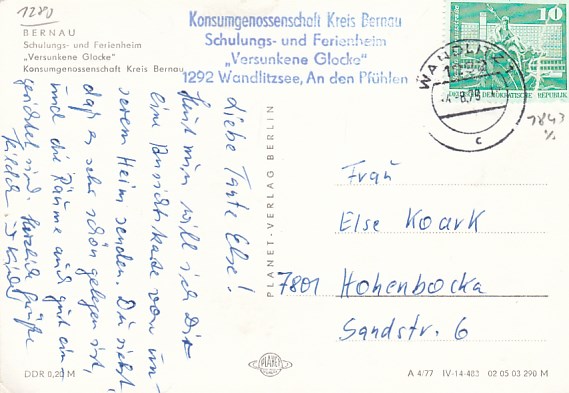 1280
BERNAU
Schulungs- und Ferienheim
„Versunkene Glocke"
Konsumgenossenschaft Kreis Bernau
Konsumgenossenschaft Kreis Bernau
Schulungs- und Ferienheim
„Versunkene Glocke"
1292 Wandlitzsee, An den Pfühlen
10
DEUTSCHE DEMOKRATISCHE REPUBLIK
WANDLITZ
-4.-8.79
c
1843
Liebe Tante Else!
Heut nun will ich Dir
eine Ansichtskarte von un-
serem Heim senden. Du siehst,
daß es sehr schön gelegen ist,
und die Räume auch gut ein-
gerichtet sind. Herzliche Grüße
PLANET-VERLAG BERLIN
Frau
Else Koark
7801 Hohenbocka
Sandstr. 6
PLANET
DDR 0,20 M
A 4/77 IV-14-483 02 05 03 290 M